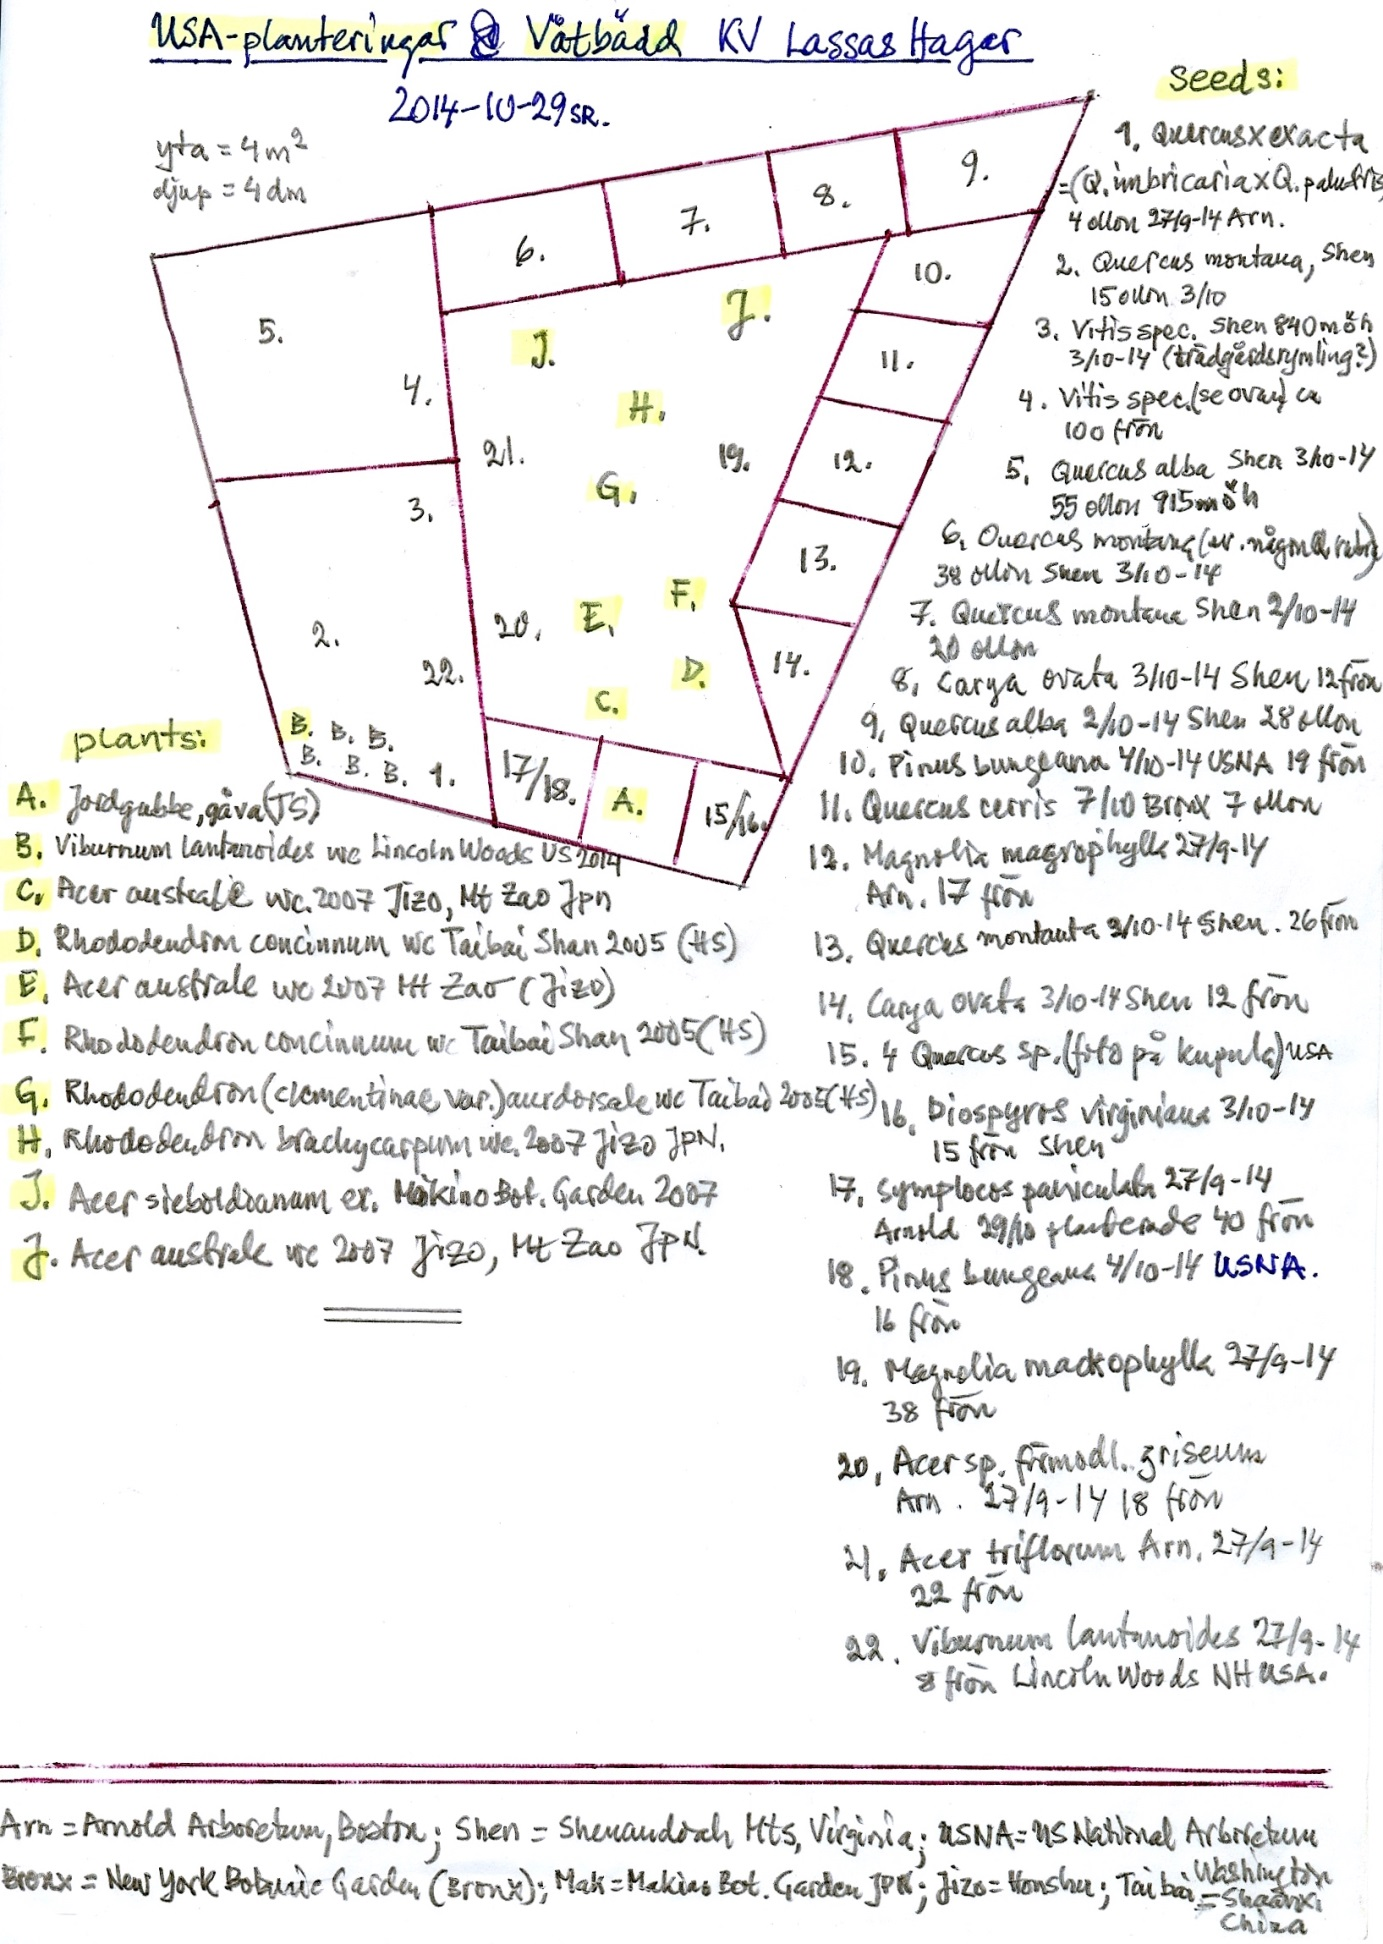 USA-planteringar Våtbädd KV Lassas Hagar
2014-10-29 SR.
yta = 4 m²
djup = 4 dm
5.
4.
3.
2.
22.
B. B. B.
B. B. B. 1.
6.
7.
8.
9.
10.
11.
12.
13.
14.
J.
J.
H.
21.
19.
G.
F.
20.
E.
D.
C.
17/18.
A.
15/16.
plants:
A. Jordgubbe, gåva (TS)
B. Viburnum lantanoides wc Lincoln Woods US 2014
C. Acer australe wc. 2007 Jizo, Mt Zao Jpn
D. Rhododendron concinnum wc Taibai Shan 2005 (HS)
E. Acer australe wc 2007 Mt Zao (Jizo)
F. Rhododendron concinnum wc Taibai Shan 2005 (HS)
G. Rhododendron (clementinae var.) aurdorsale wc Taibai 2005 (HS)
H. Rhododendron brachycarpum wc. 2007 Jizo JPN.
J. Acer sieboldianum ex. Makino Bot. Garden 2007
J. Acer australe wc 2007 Jizo, Mt Zao JPN.
seeds:
1. Quercus x exacta
=(Q. imbricaria x Q. palustris)
4 ollon 27/9-14 Arn.
2. Quercus montana, Shen
15 ollon 3/10
3. Vitis spec. Shen 840 möh
3/10-14 (trädgårdsrymling?)
4. Vitis spec. (se ovan) ca
100 frön
5. Quercus alba Shen 3/10-14
55 ollon 915 möh
6. Quercus montana (ev. någon Q. rubra)
38 ollon Shen 3/10-14
7. Quercus montana Shen 2/10-14
20 ollon
8. Carya ovata 3/10-14 Shen 12 frön
9. Quercus alba 2/10-14 Shen 28 ollon
10. Pinus bungeana 4/10-14 USNA 19 frön
11. Quercus cerris 7/10 Bronx 7 ollon
12. Magnolia magrophylla 27/9-14
Arn. 17 frön
13. Quercus montanta 2/10-14 Shen. 26 frön
14. Carya ovata 3/10-14 Shen 12 frön
15. 4 Quercus sp. (foto på kupula) USA
16. Diospyros virginiana 3/10-14
15 frön Shen
17. Symplocos paniculata 27/9-14
Arnold 29/10 planterade 40 frön
18. Pinus bungeana 4/10-14 USNA.
16 frön
19. Magnolia mackophylla 27/9-14
38 frön
20. Acer sp. förmodl. griseum
Arn. 27/9-14 18 frön
21. Acer triflorum Arn. 27/9-14
22 frön
22. Viburnum lantanoides 27/9-14
8 frön Lincoln Woods NH USA.
Arn = Arnold Arboretum, Boston; Shen = Shenandoah Mts, Virginia; USNA = US National Arboretum
Washington
Bronx = New York Botanic Garden (Bronx); Mak = Makino Bot. Garden JPN; Jizo = Honshu; Taibai = Shaanxi
China